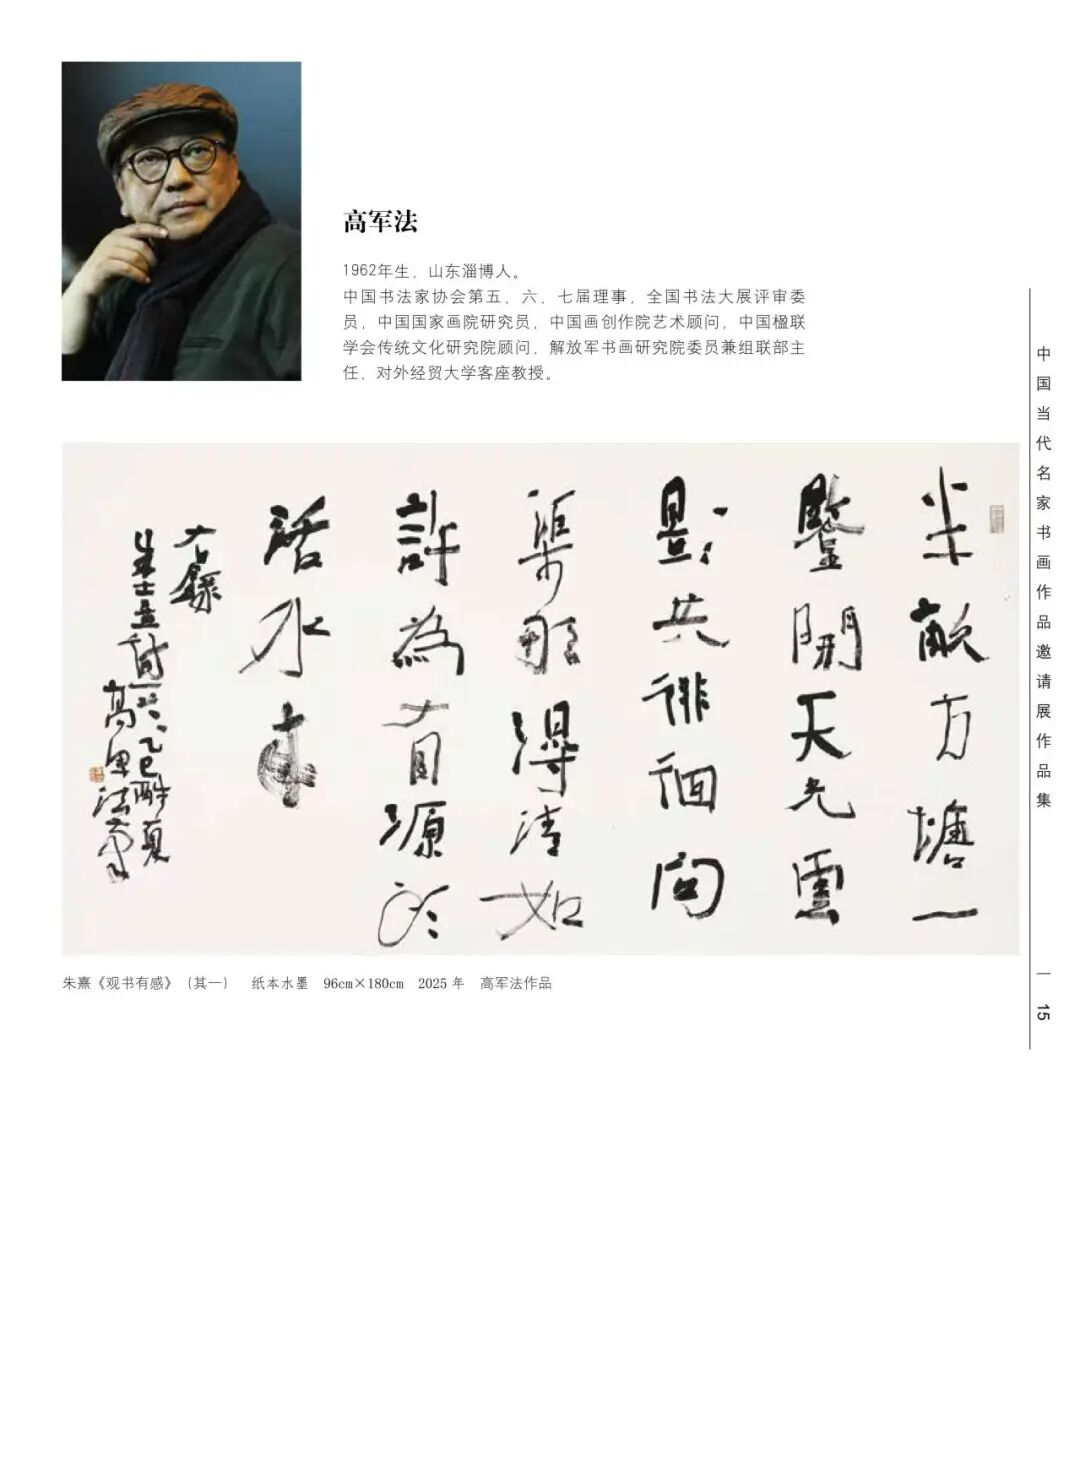 高军法
1962年生，山东淄博人。
中国书法家协会第五、六、七届理事，全国书法大展评审委
员，中国国家画院研究员，中国画创作院艺术顾问，中国楹联
学会传统文化研究院顾问，解放军书画研究院委员兼组联部主
任，对外经贸大学客座教授。
半畝方塘一
鑒開天光雲
影共徘徊問
渠那得清如
許為有源頭
活水来
右録
朱熹《观书有感》（其一） 纸本水墨 96cm×180cm 2025年 高军法作品
中国当代名家书画作品邀请展作品集
15